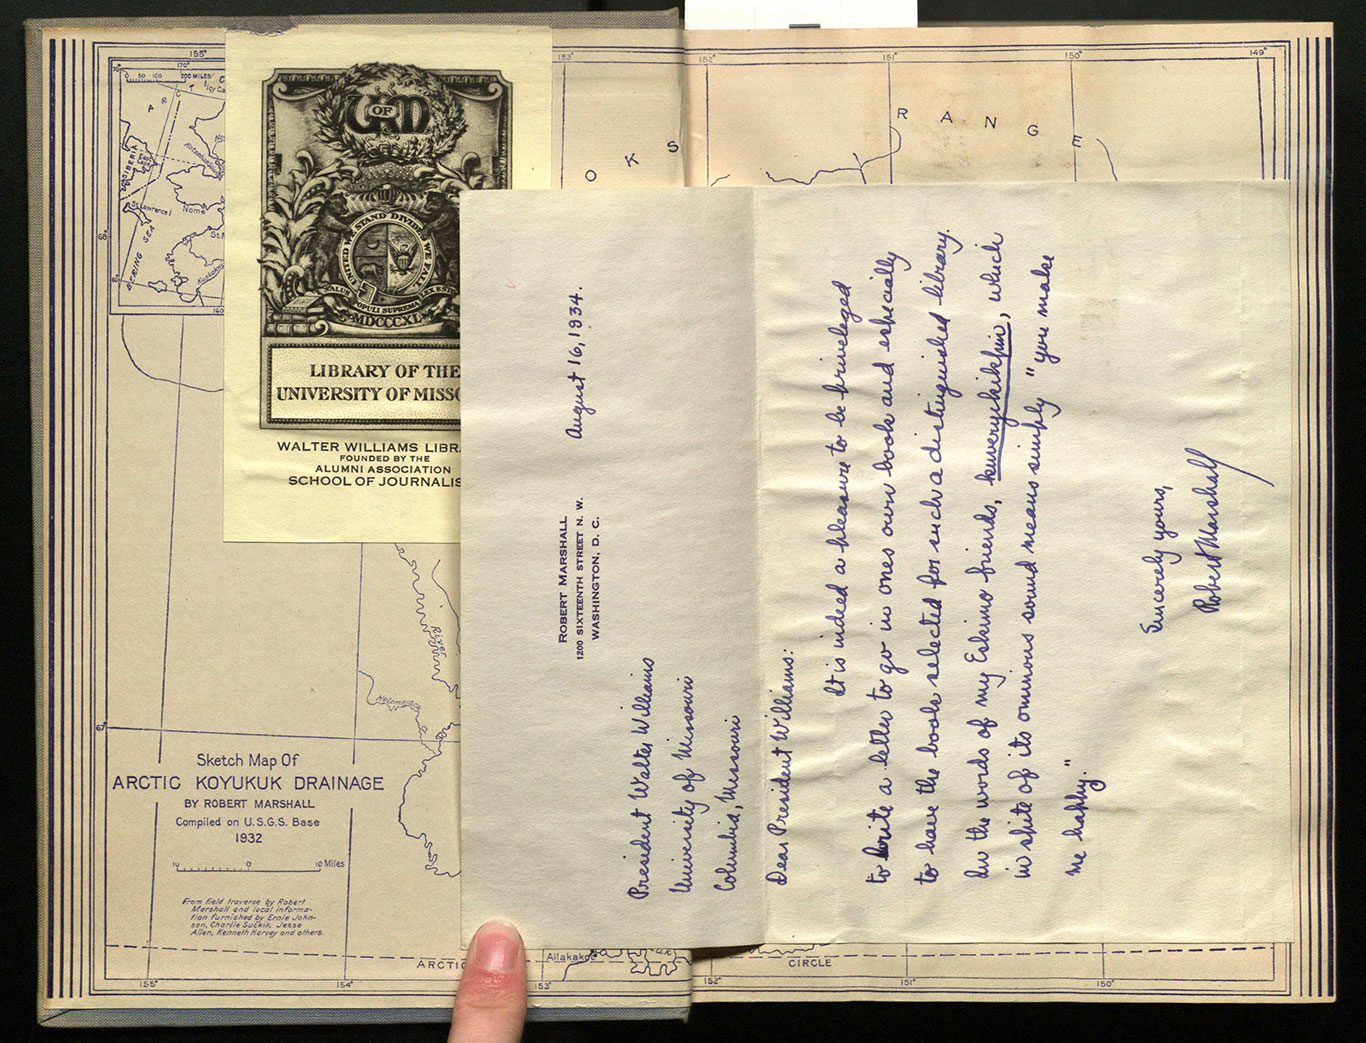 155°
153°
152°
151°
150°
149°
170°
0 50 100 200 MILES
A R C T
SIBERIA
St. Lawrence I
Nome
BERING SEA
68°
O K S
R A N G E
U OF M
UNITED WE STAND DIVIDED WE FALL
SALUS POPULI SUPREMA LEX ESTO
MDCCCXL
LIBRARY OF THE
UNIVERSITY OF MISSO
WALTER WILLIAMS LIBRA
FOUNDED BY THE
ALUMNI ASSOCIATION
SCHOOL OF JOURNALIS
ROBERT MARSHALL
1200 SIXTEENTH STREET N. W.
WASHINGTON, D. C.
August 16, 1934.
President Walter Williams
University of Missouri
Columbia, Missouri
Dear President Williams:
It is indeed a pleasure to be priveleged
to write a letter to go in ones own book and especially
to have the book selected for such a distinguished library.
In the words of my Eskimo friends, kuveryikikpin, which
in spite of its ominous sound means simply "you make
me happy."
Sincerely yours,
Robert Marshall
River
67°
Sketch Map Of
ARCTIC KOYUKUK DRAINAGE
BY ROBERT MARSHALL
Compiled on U.S.G.S. Base
1932
10 0 10 Miles
From field traverse by Robert
Marshall and local informa-
tion furnished by Ernie John-
son, Charlie Suckik, Jesse
Allen, Kenneth Harvey and others.
ARCTIC
Allakaket
CIRCLE
155°
154°
153°
152°
151°
150°